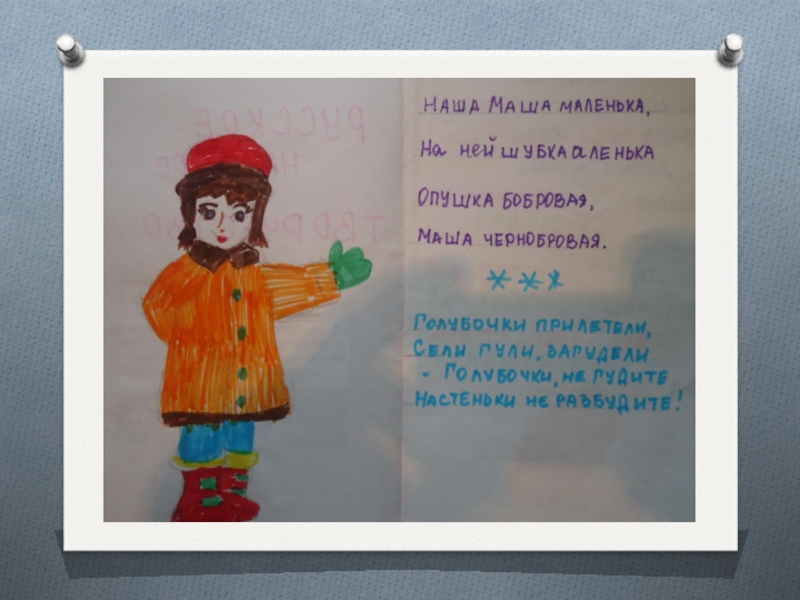 РУССКОЕ
НАША МАША МАЛЕНЬКА,
На ней ШУБКА аЛЕНЬКА
ОПУШКА БОБРОВАЯ,
МАША ЧЕРНОБРОВАЯ.
***
ГОЛУБОЧКИ ПРИЛЕТЕЛИ,
СЕЛИ ГУЛИ, ЗАГУДЕЛИ
- ГОЛУБОЧКИ, НЕ ГУДИТЕ
НАСТЕНЬКИ НЕ РАЗБУДИТЕ!